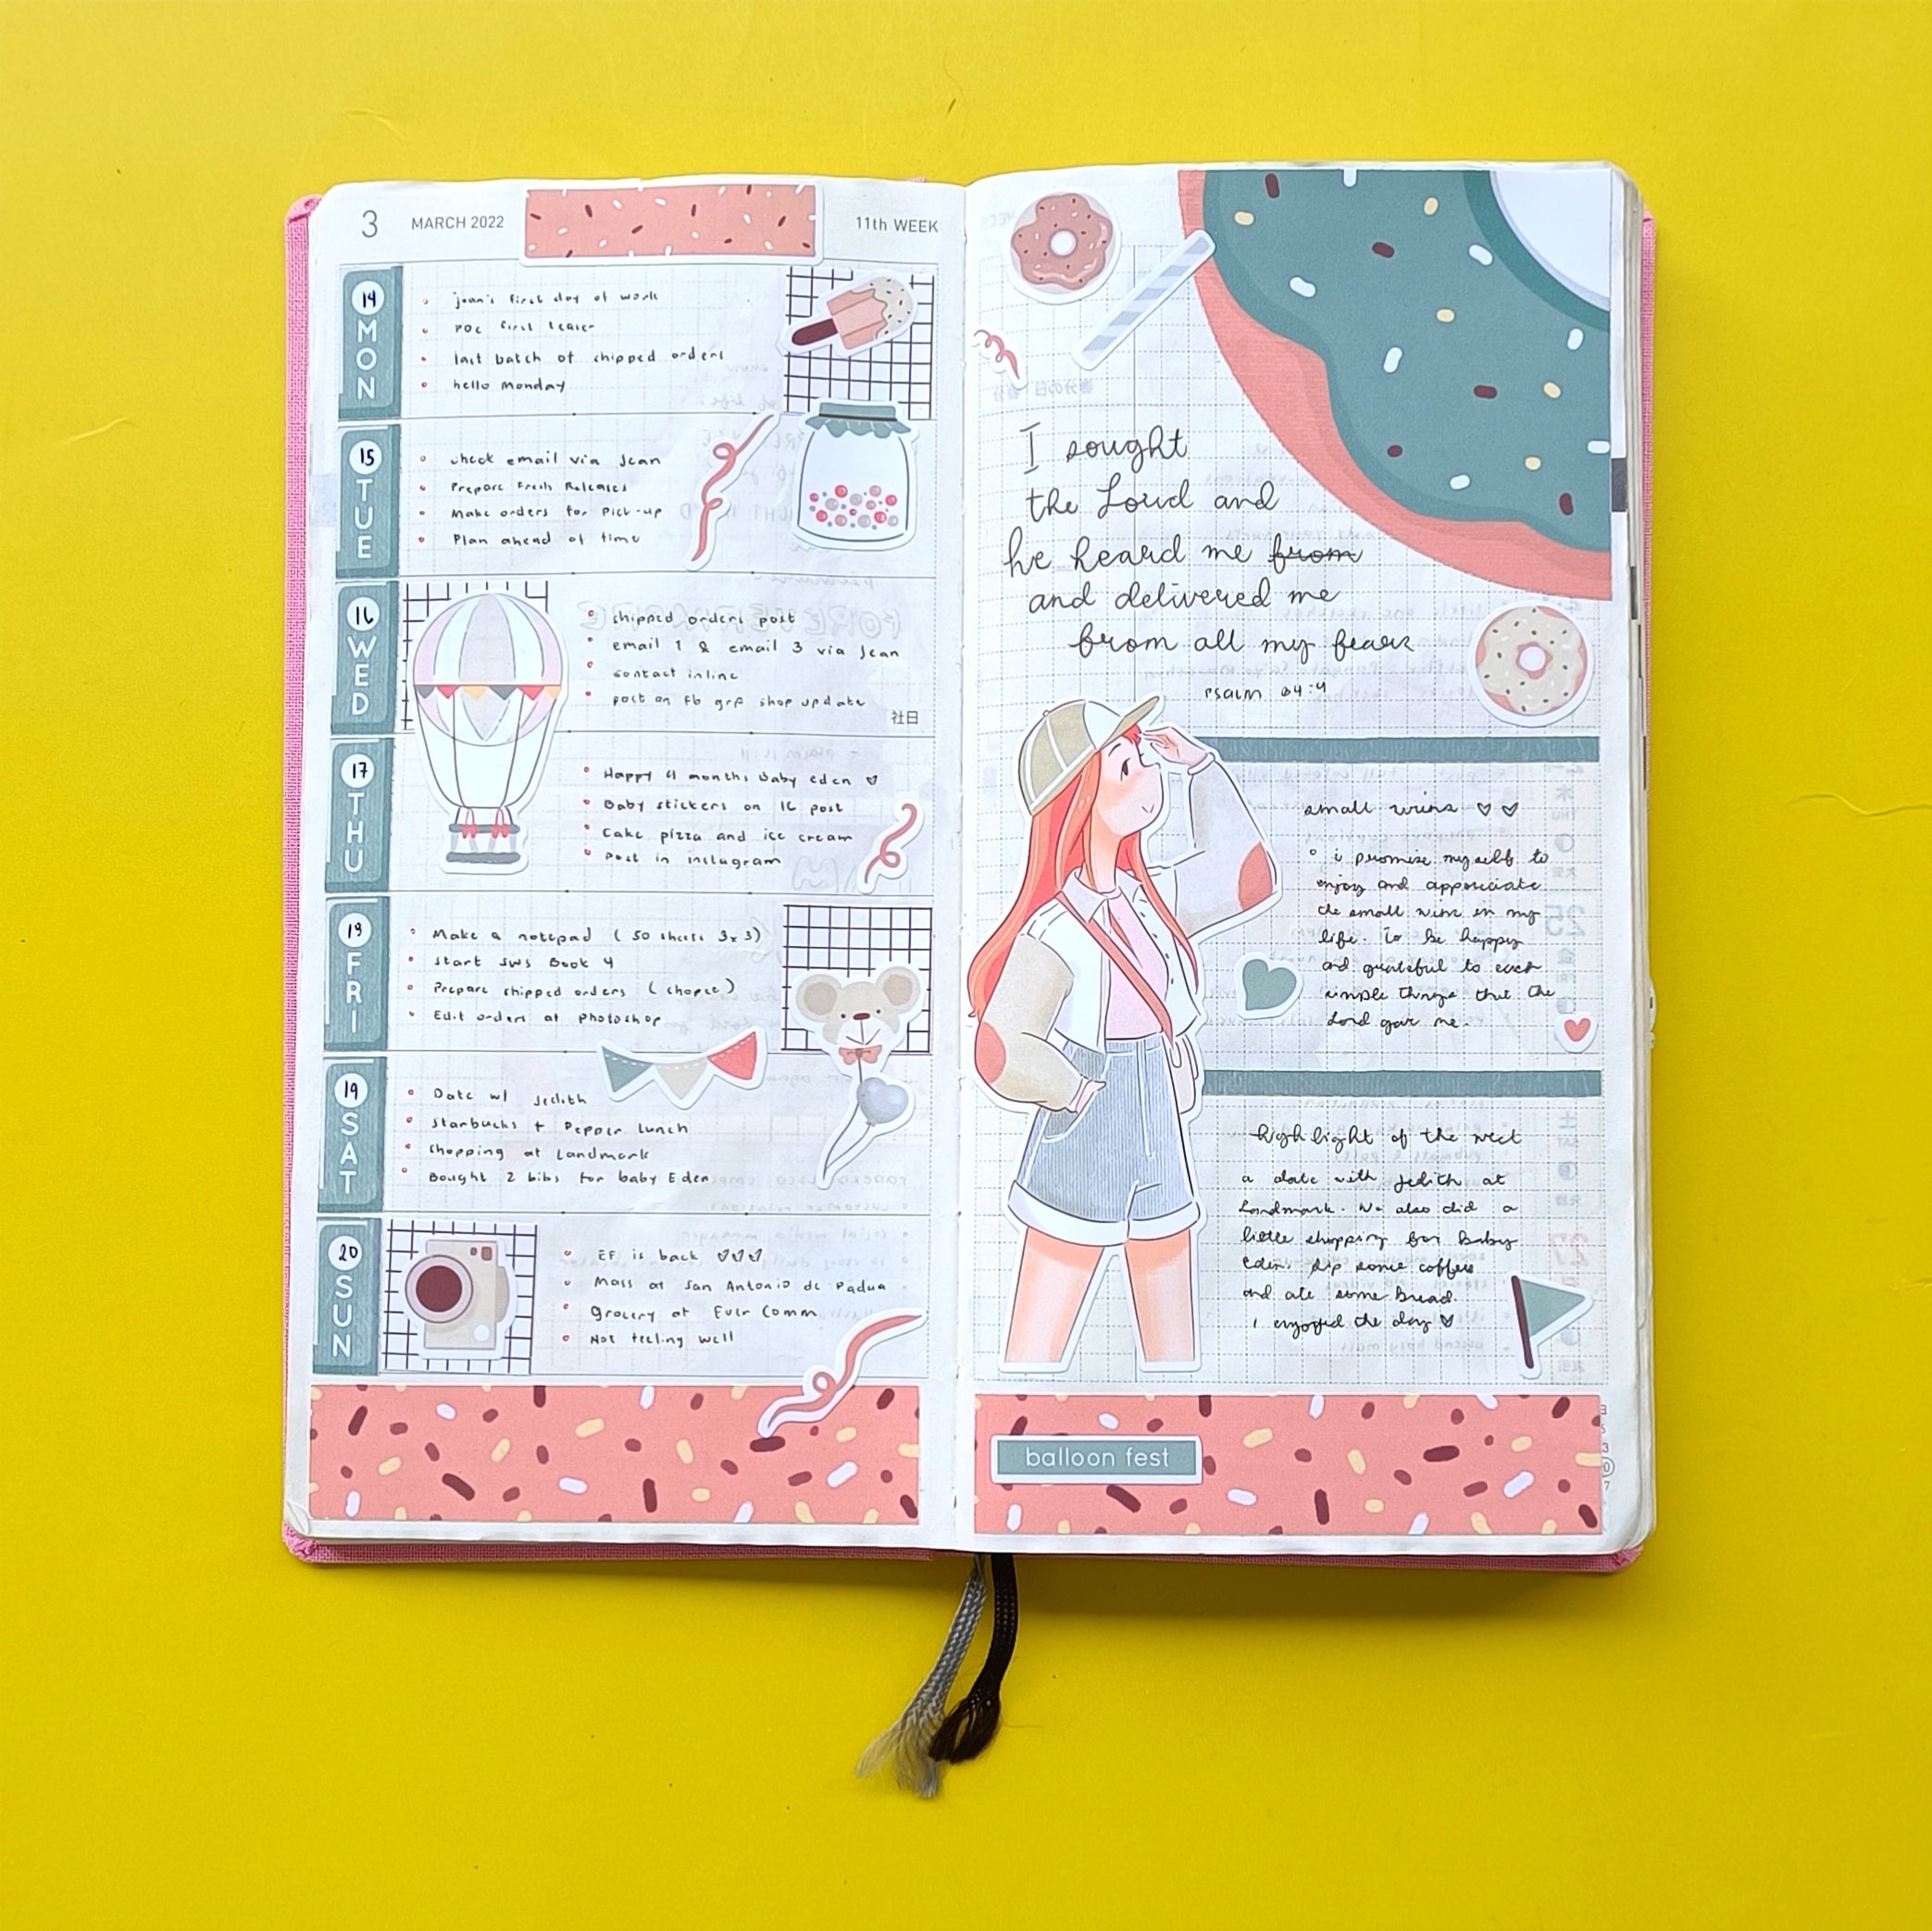 3 MARCH 2022 11th WEEK
14 MON
jean's first day of work
POC first teaser
last batch of shipped orders
hello Monday
15 TUE
check email via Jean
Prepare Fresh Releases
Make orders for Pick-up
Plan ahead of time
16 WED
shipped orders post
email 1 & email 3 via Jean
contact inline
post on fb grp shop update
社日
17 THU
Happy 4 months Baby Eden
Baby stickers on IG post
Cake pizza and ice cream
Post in instagram
FRI
Make a notepad (50 sheets 3x3)
Start SWS Book 4
Prepare shipped orders (shopee)
Edit orders at photoshop
19 SAT
Date w/ Jedith
Starbucks + Pepper Lunch
Shopping at Landmark
Bought 2 bibs for baby Eden
20 SUN
EF is back
Mass at San Antonio de Padua
Grocery at Ever Comm
Not feeling well
I sought
the Lord and
he heard me from
and delivered me
from all my fears
Psalm 34:4
small wins
i promise myself to
enjoy and appreciate
the small wins in my
life. To be happy
and grateful to each
simple things that the
Lord gave me.
highlight of the week
a date with Jedith at
Landmark. We also did a
little shopping for baby
Eden, sip some coffee
and ate some bread.
i enjoyed the day
balloon fest